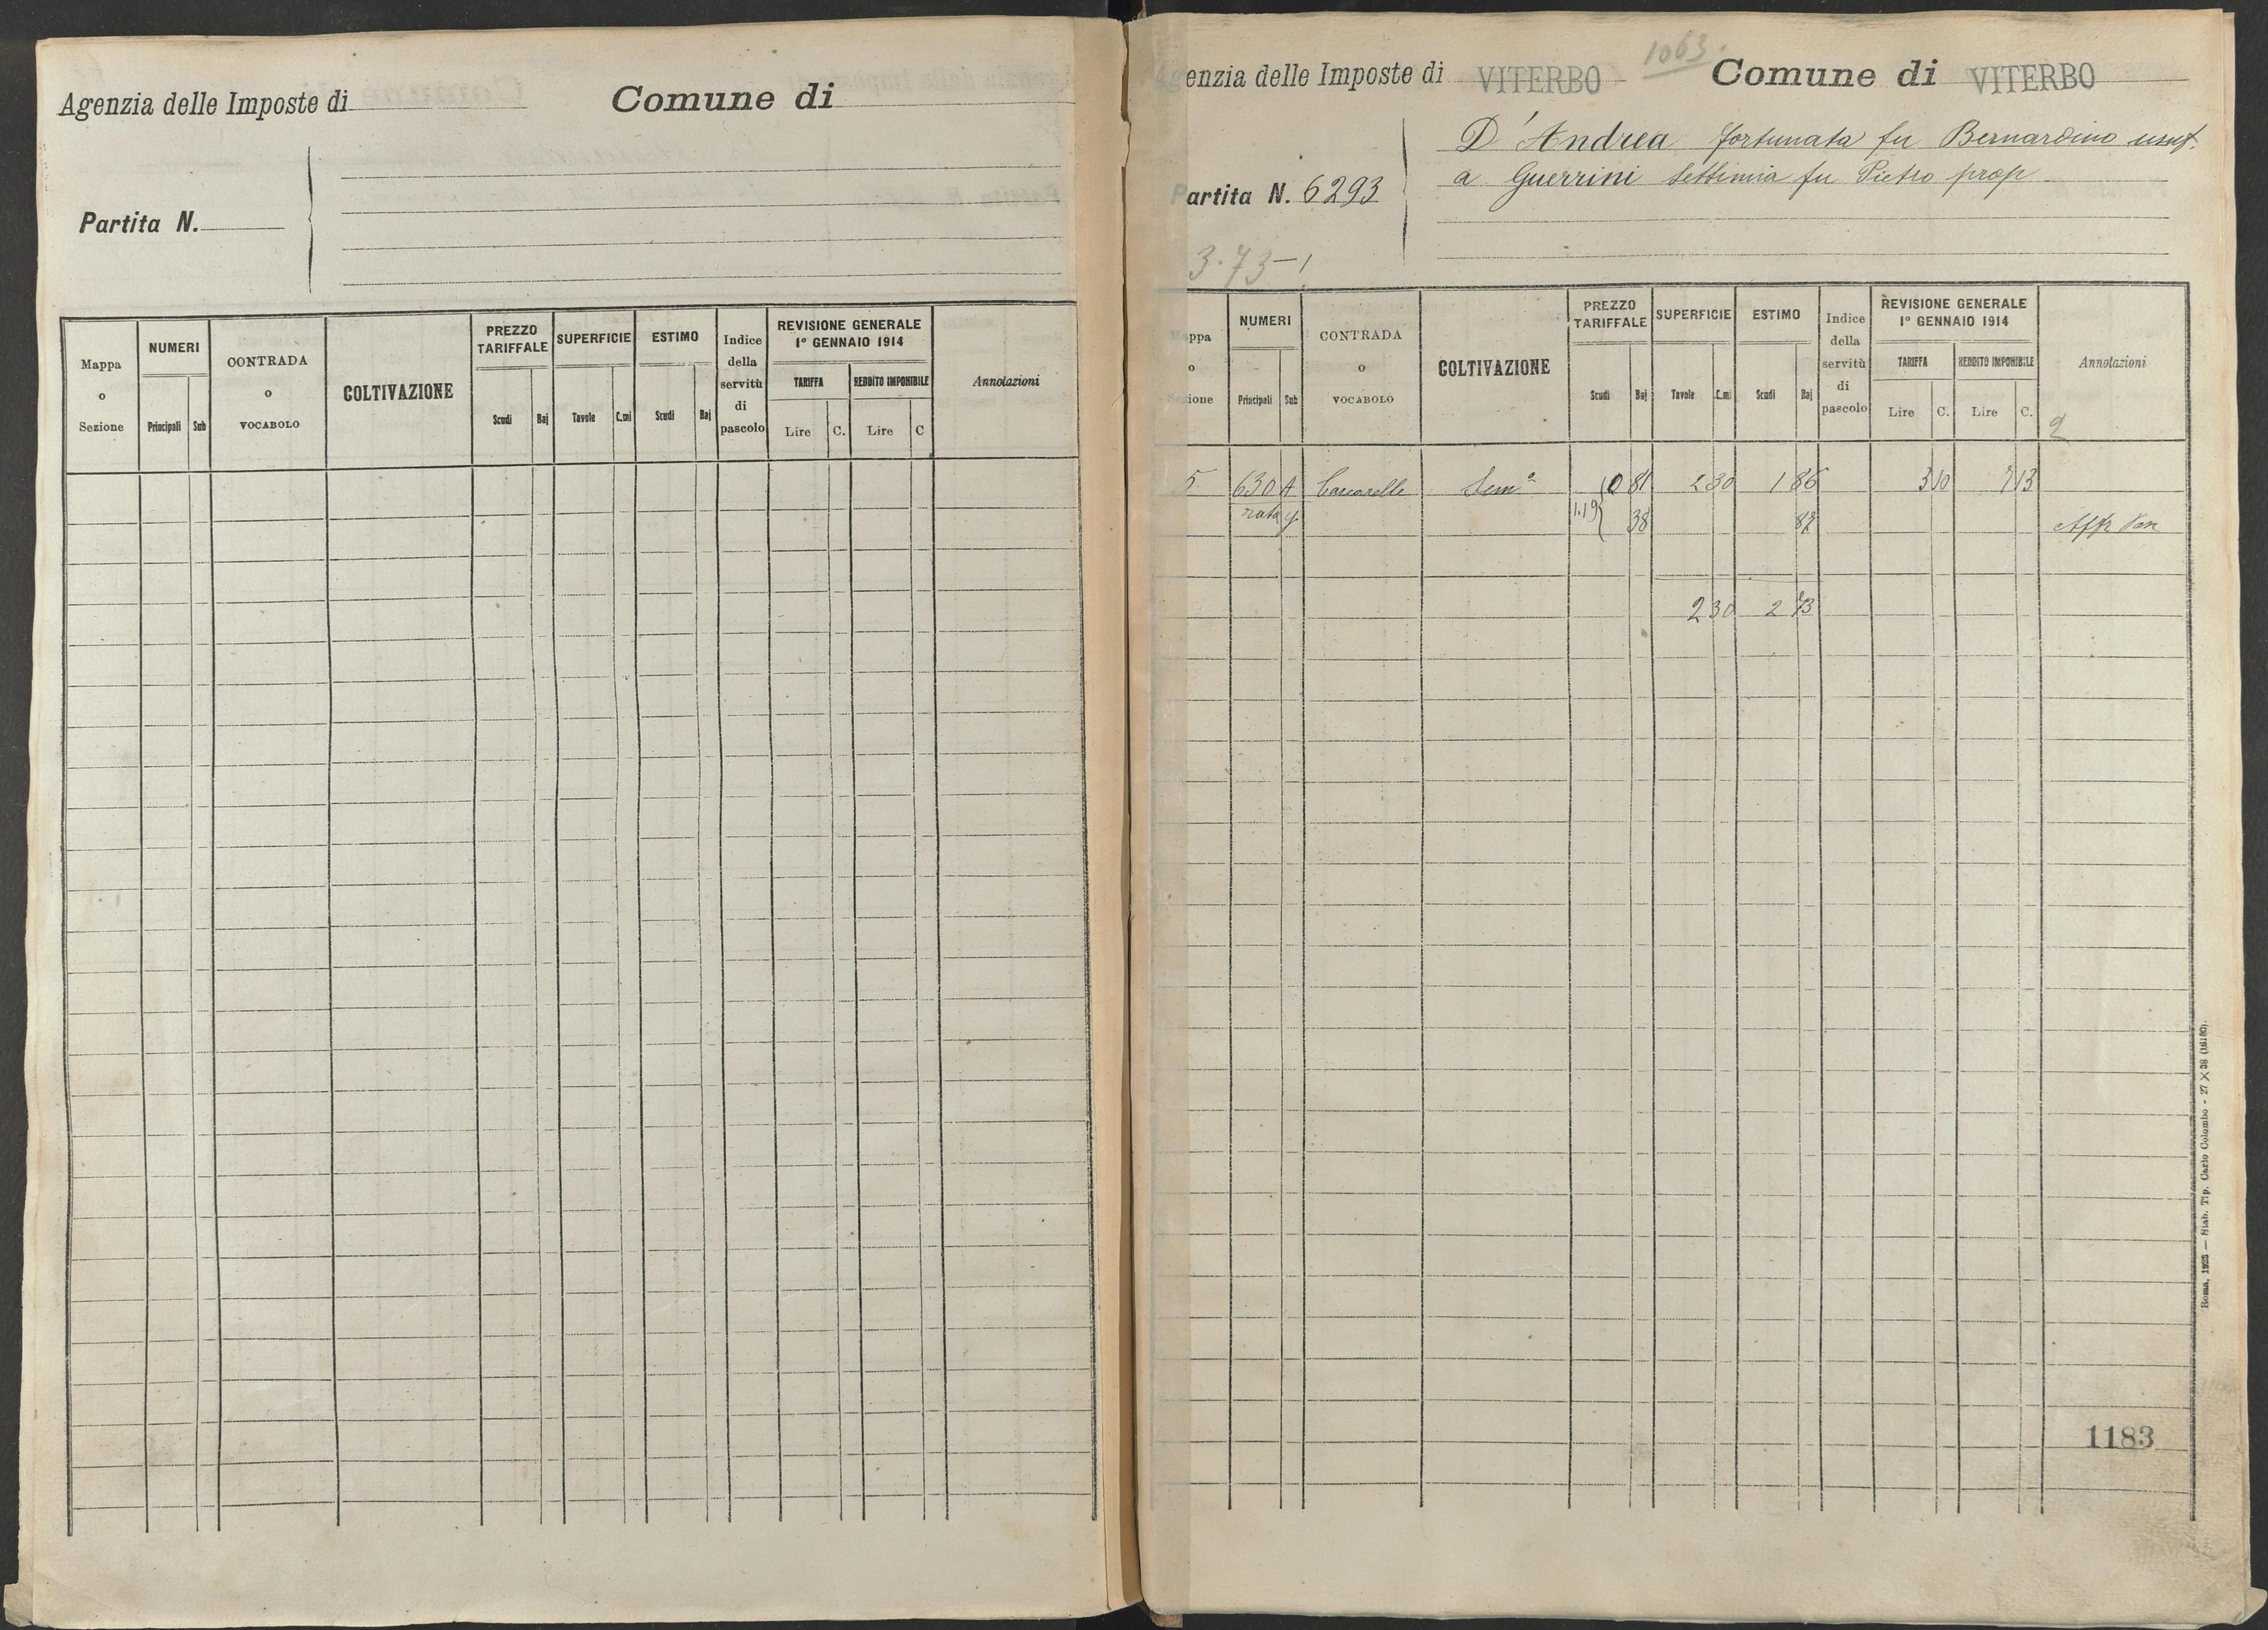 Agenzia delle Imposte di Comune di
Partita N.
Mappa o Sezione NUMERI Principali Sub CONTRADA o VOCABOLO COLTIVAZIONE PREZZO TARIFFALE Scudi Baj SUPERFICIE Tavole C.mi ESTIMO Scudi Baj Indice della servitù di pascolo REVISIONE GENERALE 1° GENNAIO 1914 TARIFFA Lire C. REDDITO IMPONIBILE Lire C Annotazioni
1063.
Agenzia delle Imposte di VITERBO Comune di VITERBO
D'Andrea Fortunata fu Bernardino usuf.
a Guerrini Settimia fu Pietro prop
Partita N. 6293
3.73-1
Mappa o Sezione NUMERI Principali Sub CONTRADA o VOCABOLO COLTIVAZIONE PREZZO TARIFFALE Scudi Baj SUPERFICIE Tavole C.mi ESTIMO Scudi Baj Indice della servitù di pascolo REVISIONE GENERALE 1° GENNAIO 1914 TARIFFA Lire C. REDDITO IMPONIBILE Lire C. Annotazioni
5 630 A Sem° 0 81 2 30 1 86 3 10 7 13
rata 1.19 38 87
2 30 2 73
1183
Roma, 1923 — Stab. Tip. Carlo Colombo - 27 × 38